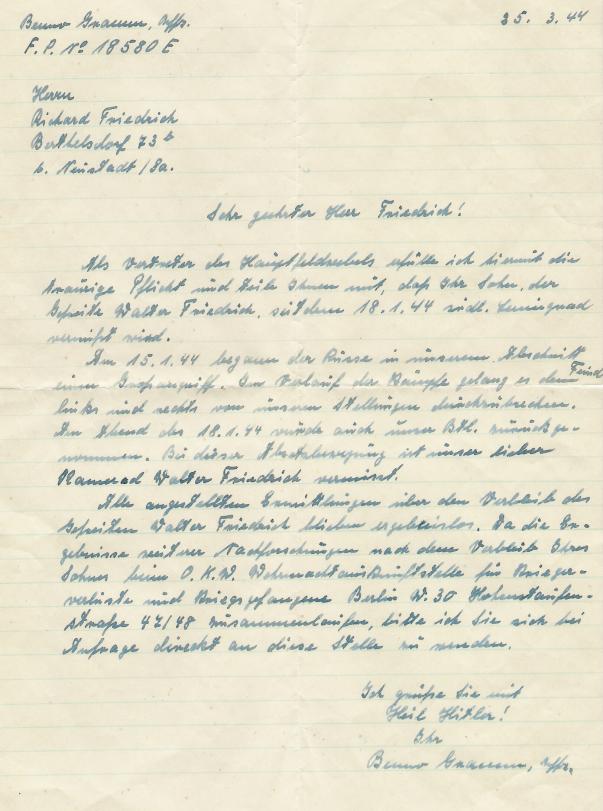 Benno Gramm, Uffz.
25. 3. 44
F. P. No 18580 E
Herrn
Richard Friedrich
Berthelsdorf 73 b
b. Neustadt / Sa.
Sehr geehrter Herr Friedrich!
Als Vertreter des Hauptfeldwebels erfülle ich hiermit die
traurige Pflicht und teile Ihnen mit, daß Ihr Sohn, der
Gefreite Walter Friedrich, seit dem 18.1.44 südl. Leningrad
vermißt wird.
Am 15.1.44 begann der Russe in unserem Abschnitt
einen Großangriff. Im Verlauf der Kämpfe gelang es dem Feind
links und rechts von unseren Stellungen durchzubrechen.
Am Abend des 18.1.44 wurde auch unser Btl. zurückge-
nommen. Bei dieser Absetzbewegung ist unser lieber
Kamerad Walter Friedrich vermisst.
Alle angestellten Ermittlungen über den Verbleib des
Gefreiten Walter Friedrich blieben ergebnislos. Da die Er-
gebnisse weiterer Nachforschungen nach dem Verbleib Ihres
Sohnes beim O.K.W. Wehrmachtauskunftstelle für Krieger-
verluste und Kriegsgefangene Berlin W. 30 Hohenstaufen-
straße 47/48 zusammenlaufen, bitte ich Sie sich bei
Anfrage direkt an diese Stelle zu wenden.
Ich grüße Sie mit
Heil Hitler!
Ihr
Benno Gramm, Uffz.